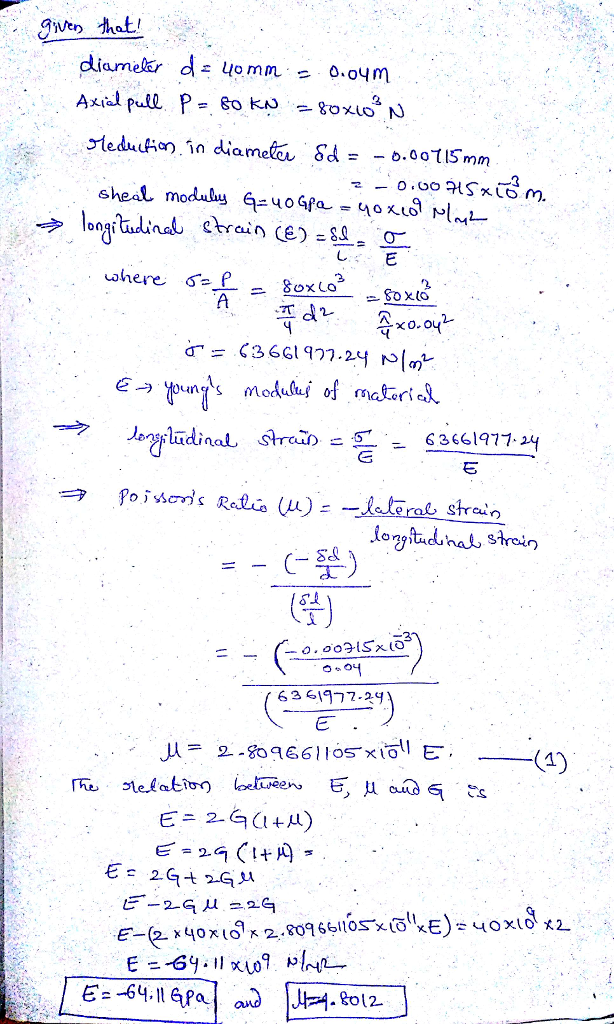 given that!
diameter d = 40mm = 0.04m
Axial pull P = 80 KN = 80x10³ N
reduction in diameter δd = - 0.00715mm
= - 0.00715x10⁻³ m.
shear modulus G=40Gpa = 40x10⁹ N/m²
⇒ longitudinal strain (E) = δl/L = σ/E
where σ = P/A = 80x10³ / (π/4 d²) = 80x10³ / (π/4 x0.04²)
σ = 63661977.24 N/m²
E → young's modulus of material
⇒ longitudinal strain = σ/E = 63661977.24 / E
⇒ poisson's Ratio (μ) = - lateral strain / longitudinal strain
= - (-δd/d) / (δl/l)
= - (-0.00715x10⁻³ / 0.04) / (6361977.24 / E)
μ = 2.809661105x10⁻¹¹ E. —(1)
The relation between E, μ and G is
E = 2G(1+μ)
E = 2G (1+μ) =
E = 2G + 2Gμ
E - 2Gμ = 2G
E-(2x40x10⁹x2.809661105x10⁻¹¹xE) = 40x10⁹x2
E = -64.11x10⁹ N/m²
E = -64.11 Gpa and μ=-1.8012